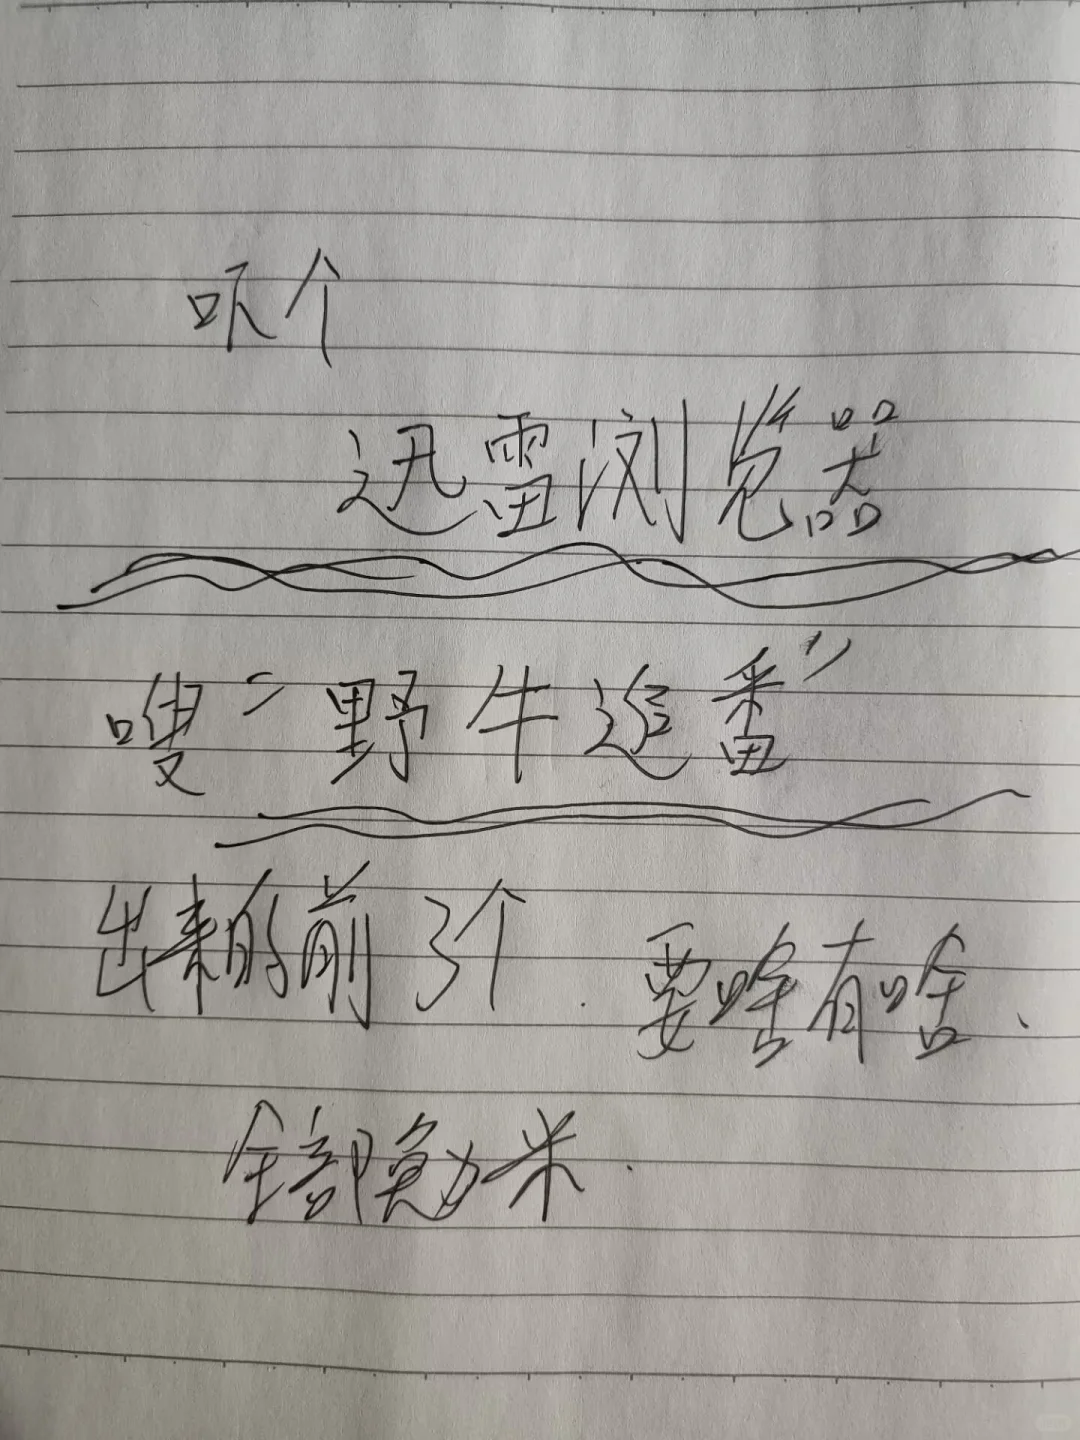 吓个
迅雷浏览器
嗖“野牛追番”
出来的前3个.要啥有啥、
全部免力米.